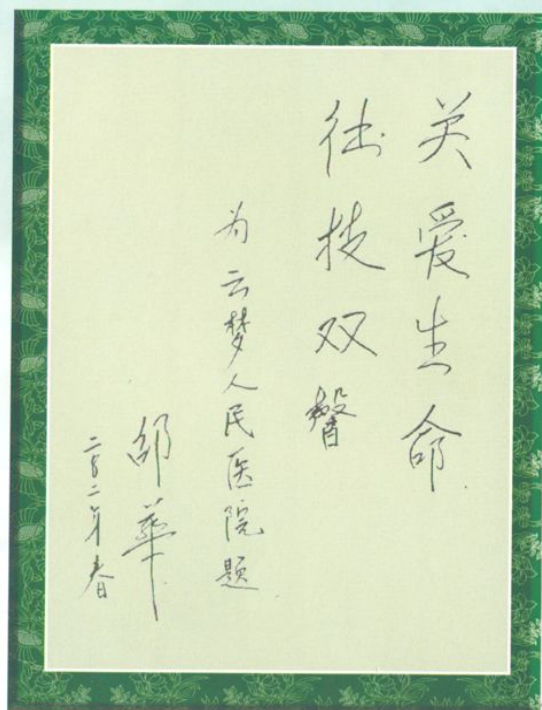 关爱生命
德技双馨
为云梦人民医院题
邵华
二〇〇二年春